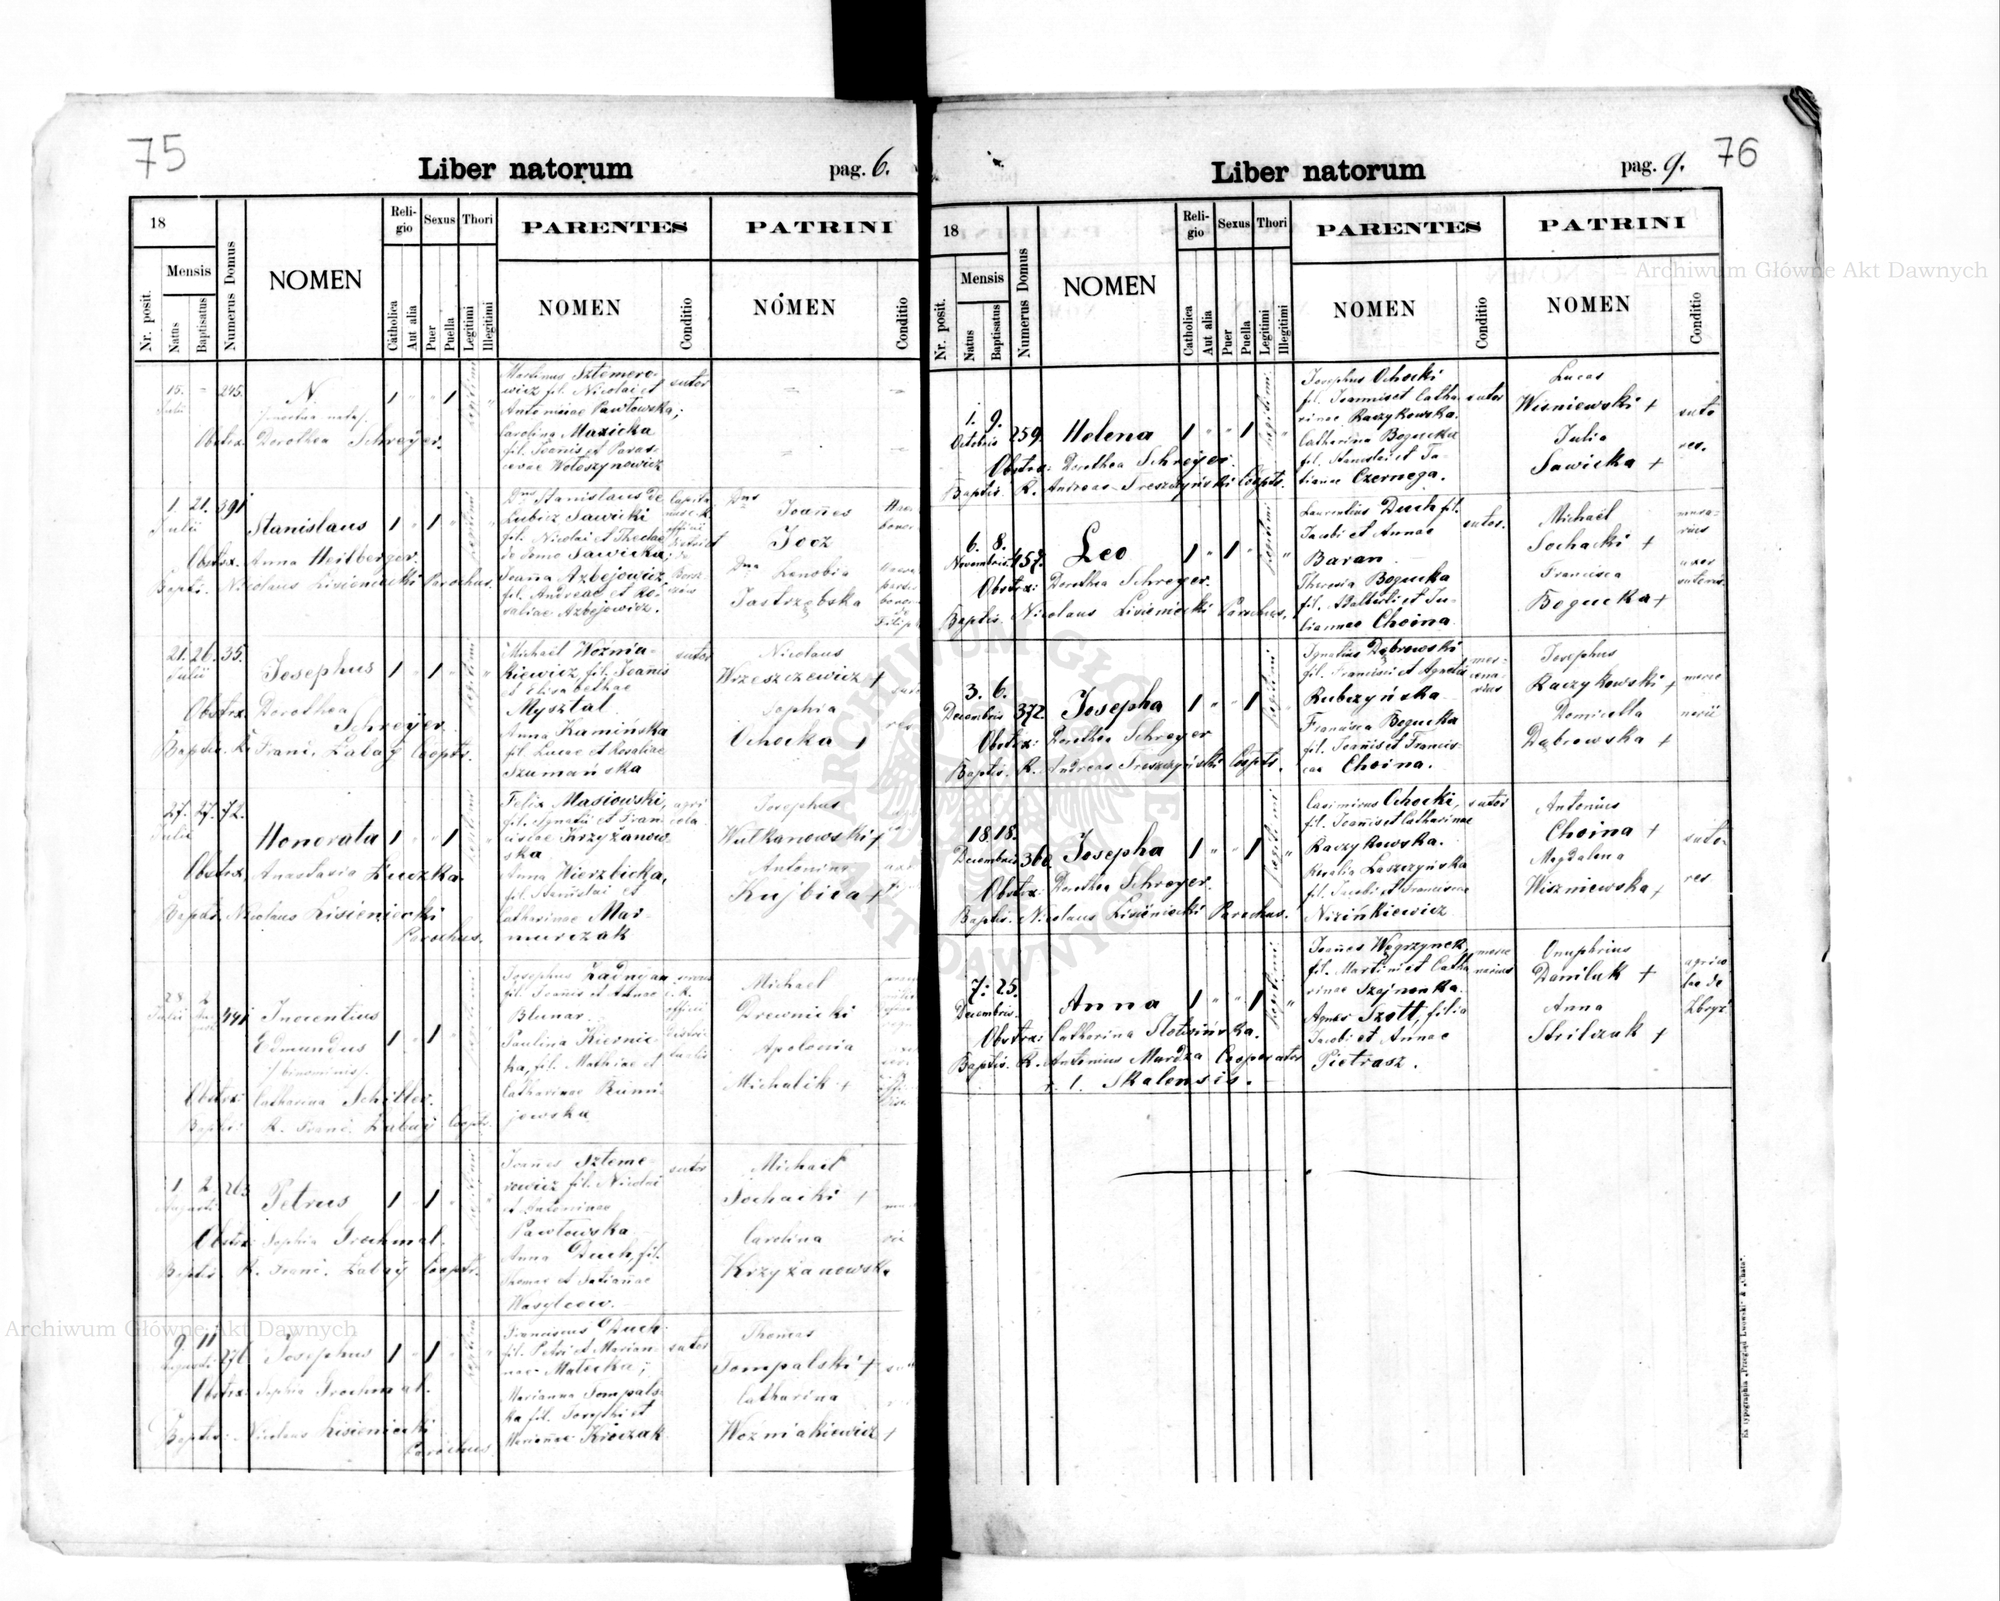 75
Liber natorum
pag. 6.
18
Nr. posit.
Mensis
Natus
Baptisatus
Numerus Domus
NOMEN
Reli-
gio
Catholica
Aut alia
Sexus
Puer
Puella
Thori
Legitimi
Illegitimi
PARENTES
NOMEN
Conditio
PATRINI
NOMEN
Conditio
15. 245. N 1 " " 1
Julii
Obstex Dorothea Schreyer.
Martinus Sztemero-
wicz fil. Nicolai et
Antoninae Pawłowska;
Carolina Mazicka
fil. Joanis et Paras-
cevae Wołoszynowicz
sutor
1. 21. 391 Stanislaus 1 " 1 "
Julii
Obstex. Anna Hertberger.
Bapti. Nicolaus Lisieniecki Parochus.
Dnus Stanislaus de
Lubicz Sawicki
fil. Nicolai et Theclae
de domo Sawicka;
Joanna Azbejowicz,
fil. Andreae et Ro-
saliae Azbejowicz.
Dnus Joannes
Jocz
Dna Zenobia
Jastrzębska
21. 26. 35. Josephus 1 " 1 "
Julii
Obstex. Dorothea
Schreyer.
Baptis. R. Franc. Łabaÿ Cooptr.
Michaël Woźnia-
kiewicz, fil. Joannis
et Elisabethae
Mysztal.
Anna Kamińska
fil. Lucae et Rosaliae
Szumańska
sutor
Nicolaus
Wrzeszczewicz +
Sophia
Ochocka +
27. 27. 72. Honorata 1 " " 1
Julii
Obstex. Anastasia Łuczka.
Baptis. Nicolaus Lisieniecki
Parochus.
Felix Masiowski,
fil. Ignatii et Fran-
ciscae Krzyżanow-
ska
Anna Wierzbicka,
fil. Stanislai et
Catharinae Mar-
murczak
agri
cola
Josephus
Wutkanowski
Antonina
Kujbida +
28. 2. 441 Inocentius
Julii
Edmundus 1 " 1 "
/:binominis/.
Obstex: Catharina Schiller.
Baptis: R. Franc. Łabaÿ Cooptr.
Josephus Ładnÿan
fil. Joannis et Annae
Blunar.
Paulina Kiernic-
ka, fil. Mathiae et
Catharinae Rumi-
jowska
Michael
Drewnicki
Apolonia
Michalik +
1 2. 263 Petrus 1 " 1 "
Augusti
Obstex: Sophia Grochmal.
Baptis R. Franc. Łabaÿ Cooptr.
Joannes Szteme-
rowicz fil. Nicolai
et Antoninae
Pawłowska
Anna Duch, fil.
Thomae et Tatiannae
Wasylcow.
sutor
Michaël
Sochacki +
Carolina
Krzyżanowska
9. 11 276 Josephus 1 " 1 "
Augusti
Obstex: Sophia Grochmal.
Baptis: Nicolaus Lisieniecki
Parochus
Franciscus Duch
fil. Petri et Marian-
nae Matecka;
Marianna Sompals-
ka fil. Josephi et
Mariannae Kroczak
sutor
Thomas
Sompalski +
Catharina
Woźniakiewicz +
76
Liber natorum
pag. 9.
18
Nr. posit.
Mensis
Natus
Baptisatus
Numerus Domus
NOMEN
Reli-
gio
Catholica
Aut alia
Sexus
Puer
Puella
Thori
Legitimi
Illegitimi
PARENTES
NOMEN
Conditio
PATRINI
NOMEN
Conditio
1. 9. 259. Helena 1 " " 1 Legitimi "
Octobris
Obstex: Dorothea Schreyer.
Baptis. R. Andreas Treszczyński Cooptr.
Josephus Ochocki
fil. Joannis et Catha-
rinae Raczykowska.
Catharina Bogucka
fil. Stanislai et Ta-
tianae Czernega.
sutor
Lucas
Wiśniewski +
Julia
Sawicka +
suto
res.
6. 8. 457. Leo 1 " 1 " Legitimi "
Novembris
Obstex: Dorothea Schreyer.
Baptis. Nicolaus Lisieniecki Parochus.
Laurentius Duch fil.
Jacobi et Annae
Baran
Theresia Bogucka
fil. Adalberti et Ju-
liannae Choina
sutor.
Michaël
Sochacki +
Francisca
Bogucka +
uxor
3. 6. 372. Josepha 1 " " 1 Legitimi "
Decembris
Obstex: Dorothea Schreyer
Baptis. R. Andreas Treszczyński Cooptr.
Ignatius Dąbrowski
fil. Francisci et Agnetis
Rubczyńska
Francisca Bogucka
fil. Joannis et Francis-
cae Choina.
mer-
cena-
rius
Josephus
Raczykowski +
Domicella
Dąbrowska +
merce
narii
18. 18. 360. Josepha 1 " " 1 Legitimi "
Decembris
Obstex: Dorothea Schreyer.
Baptis. Nicolaus Lisieniecki Parochus.
Casimirus Ochocki,
fil. Joannis et Catharinae
Raczykowska.
Rosalia Laszczyńska
fil. Jacobi et Franciscae
Nizińkiewicz
sutor
Antonius
Choina +
Magdalena
Wiszniewska +
suto-
res
7: 25. Anna 1 " " 1 Legitimi "
Decembris
Obstex: Catharina Słotwińska.
Baptis. R. Antonius Mardza Cooperator
Skalensis.
Joannes Węgrzynek,
fil. Martini et Catha
rinae Szajnowska.
Agnes Szott, filia
Jacobi et Annae
Pietrasz.
merce
narius
Onuphrius
Daniluk +
Anna
Strilczuk +
agrico
lae de
Zbryz
Ex typographia „Przegląd Lwowski" & „Chata".
Archiwum Główne Akt Dawnych
Archiwum Główne Akt Dawnych
ARCHIWUM GŁÓWNE AKT DAWNYCH